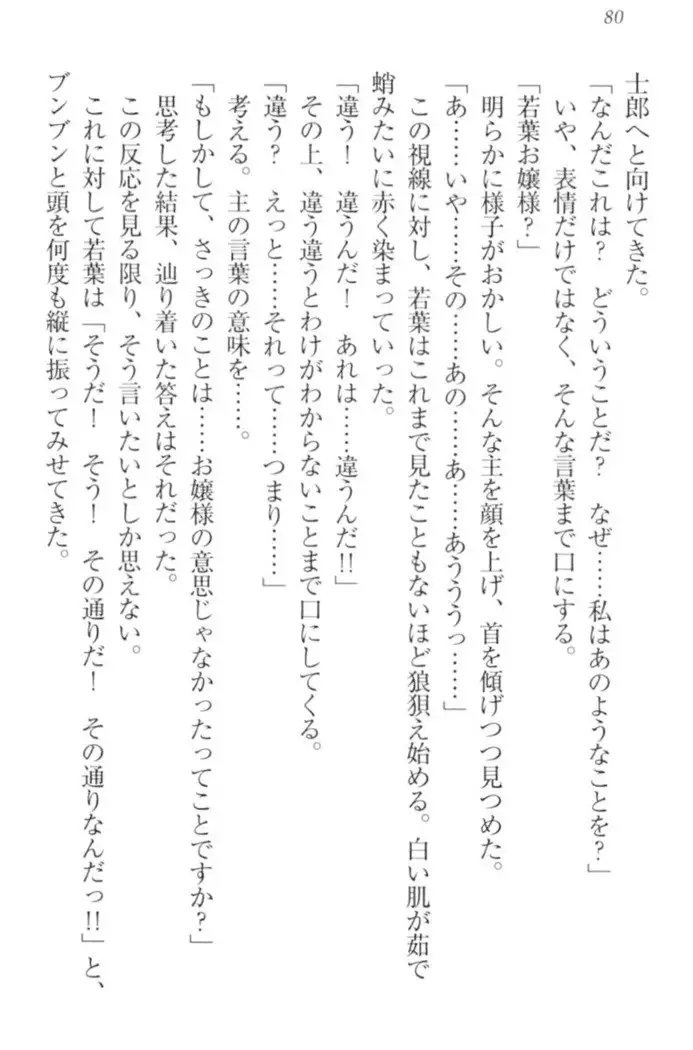 80
士郎へと向けてきた。
「なんだこれは？　どういうことだ？　なぜ……私はあのようなことを？」
いや、表情だけではなく、そんな言葉まで口にする。
「若葉お嬢様？」
明らかに様子がおかしい。そんな主を顔を上げ、首を傾げつつ見つめた。
「あ……いや……その……あの……あ……あううっ……」
この視線に対し、若葉はこれまで見たこともないほど狼狽え始める。白い肌が茹で
蛸みたいに赤く染まっていった。
「違う！　違うんだ！　あれは……違うんだ!!」
その上、違う違うとわけがわからないことまで口にしてくる。
「違う？　えっと……それって……つまり……」
考える。主の言葉の意味を……。
「もしかして、さっきのことは……お嬢様の意思じゃなかったってことですか？」
思考した結果、辿り着いた答えはそれだった。
この反応を見る限り、そう言いたいとしか思えない。
これに対して若葉は「そうだ！　そう！　その通りだ！　その通りなんだっ!!」と、
ブンブンと頭を何度も縦に振ってみせてきた。